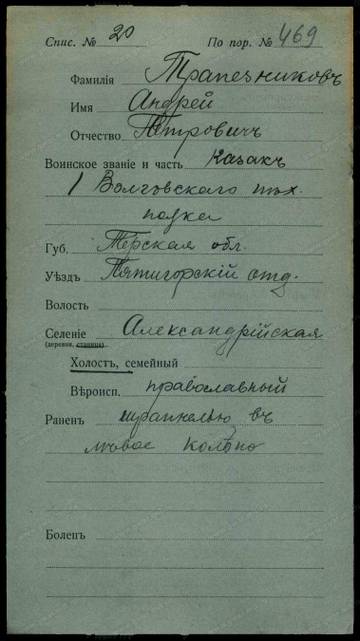 Спис. № 20 По пор. № 469
Фамилія Трапезниковъ
Имя Андрей
Отчество Петровичъ
Воинское званіе и часть казакъ
1 Волговскаго
полка
Губ. Терская обл.
Уѣздъ Пятигорскій отд.
Волость
Селеніе Александрійская
(деревня, станица)
Холостъ, семейный
Вѣроисп. православный
Раненъ шрапнелью въ
лѣвое колѣно
Боленъ